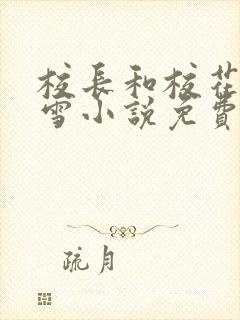 校長和校花
雪小說免費
疏月